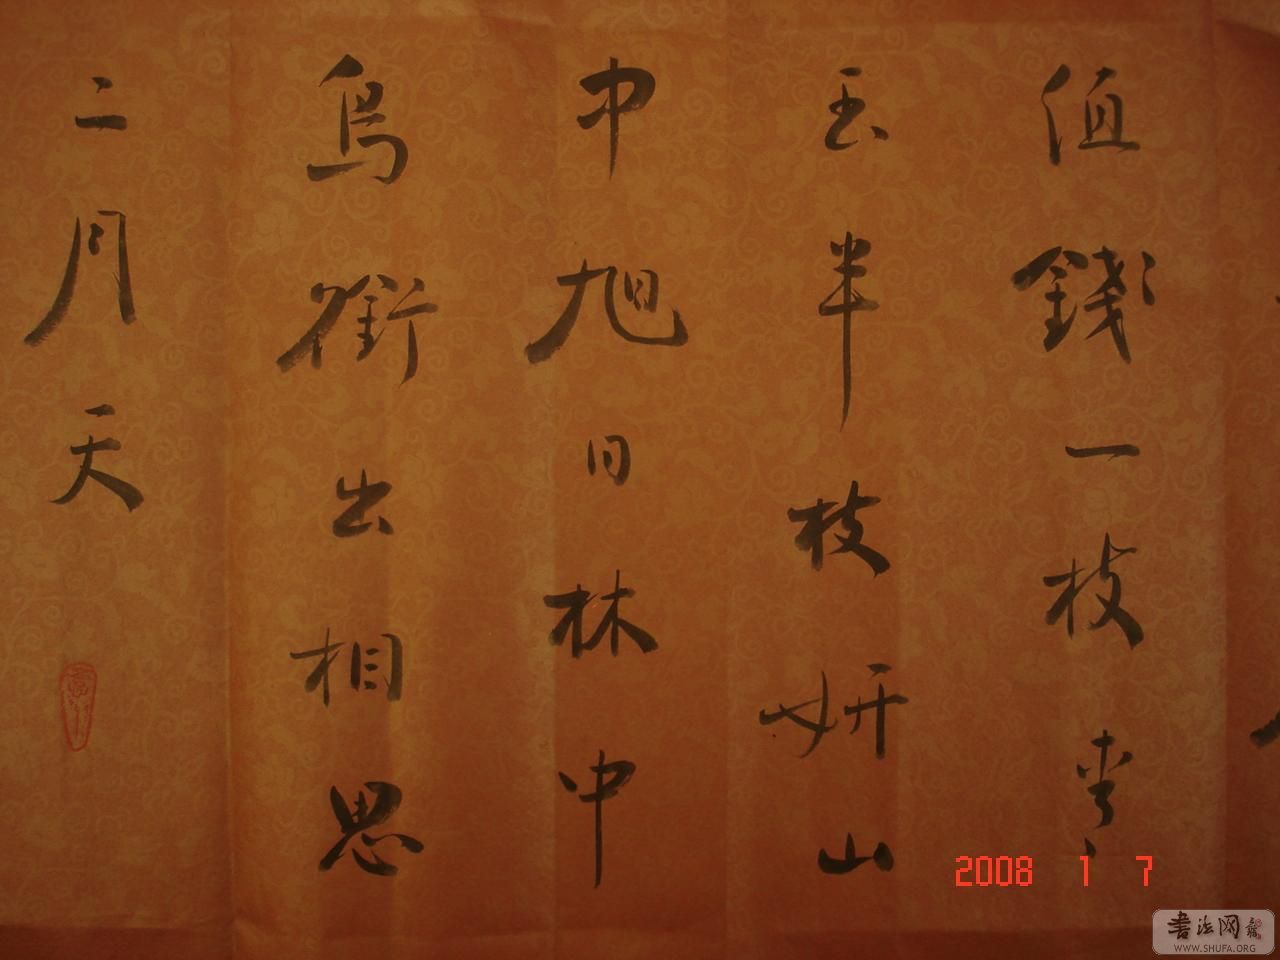 值錢一枝
玉半枝妍山
中旭日林中
鳥銜出相思
二月天
2008 1 7
書法网
WWW.SHUFA.ORG